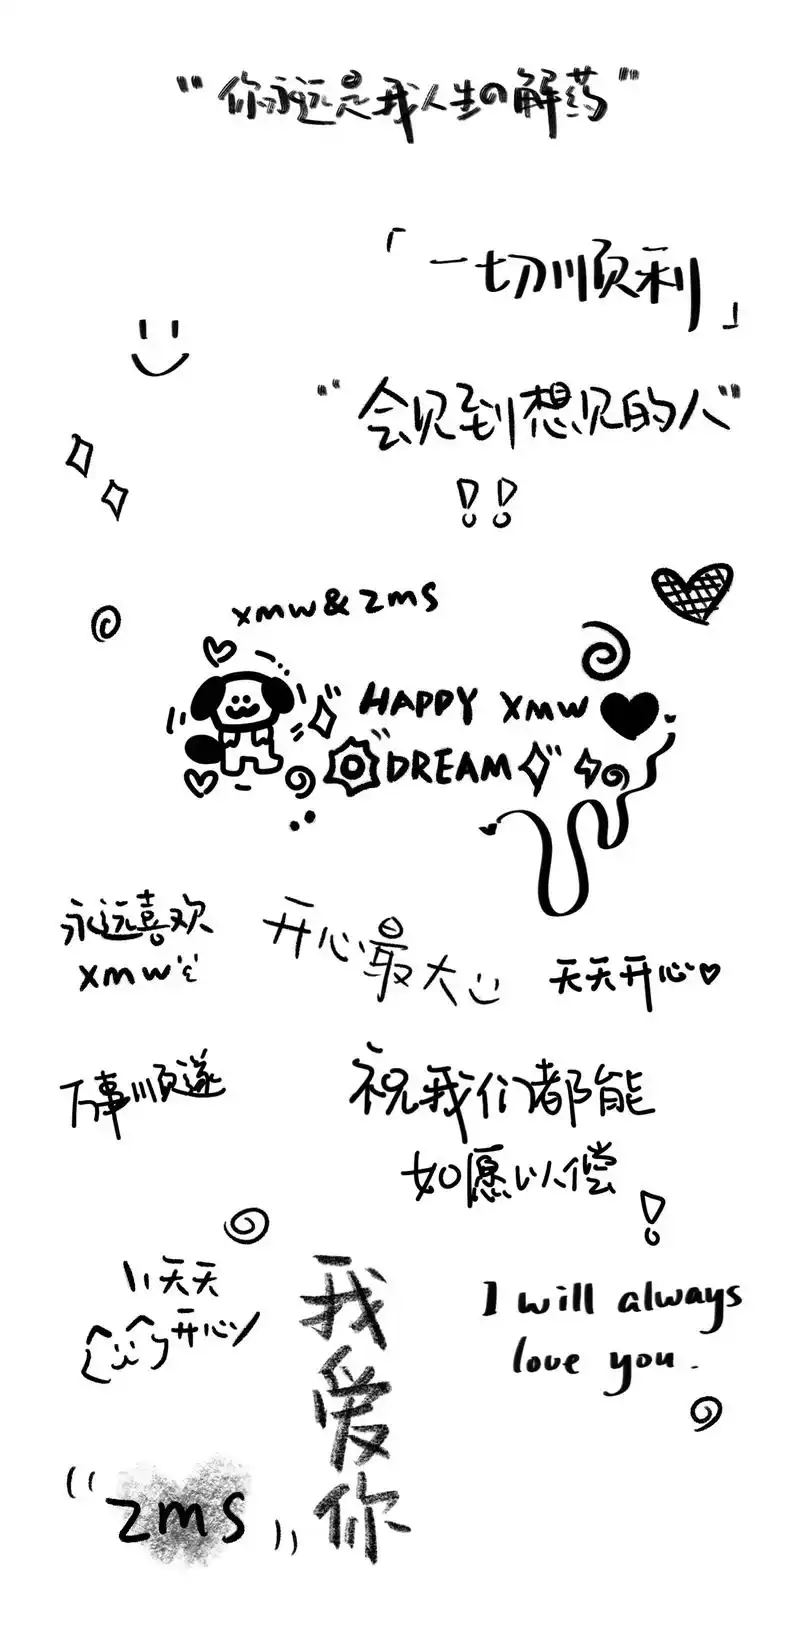 "你永远是我人生の解药"
「一切顺利」
"会见到想见的人"
!!
xmw & zms
HAPPY XMW
DREAM
永远喜欢
xmw
开心最大
天天开心
万事顺遂
祝我们都能
如愿以偿!
天天
开心
我爱你
I will always
love you.
"zms"